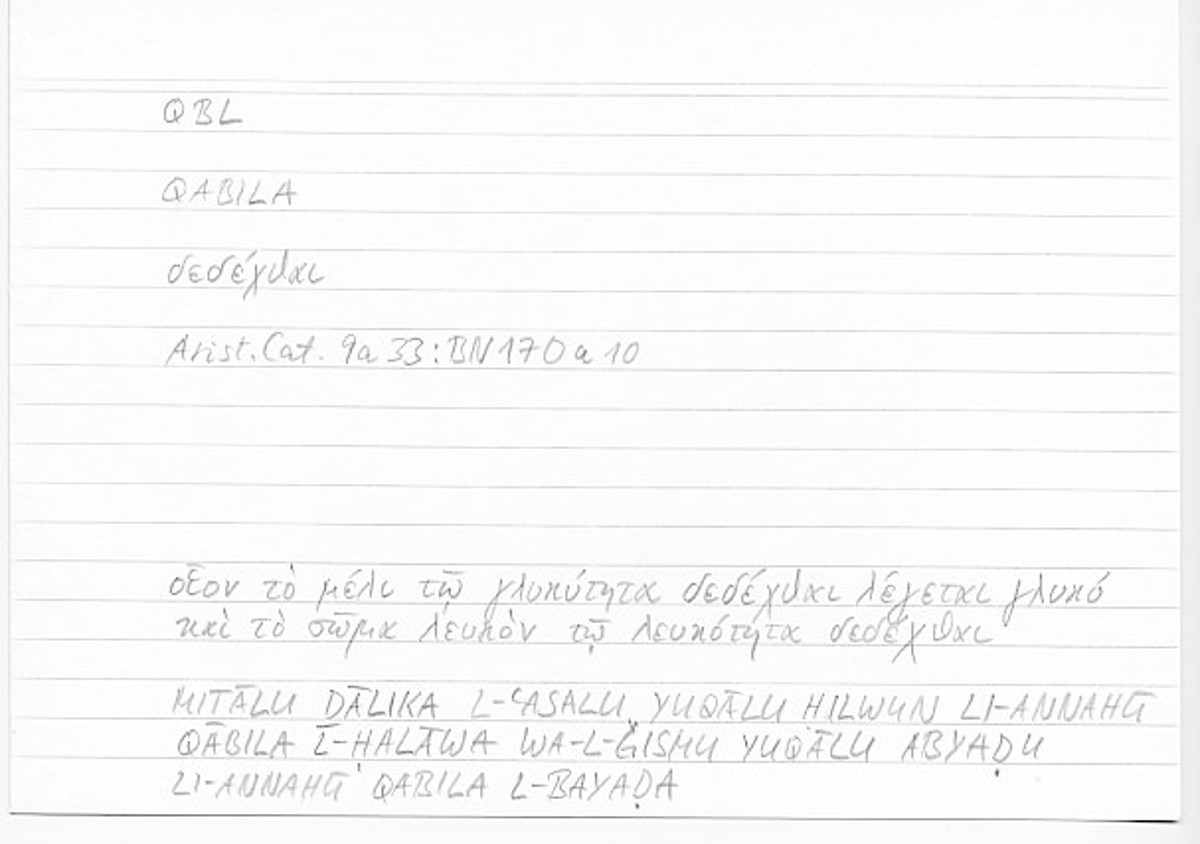 QBL
QABILA
δεδέχθαι
Arist. Cat. 9a 33 : BN 170 a 10
οἷον τὸ μέλι τῷ γλυκύτητα δεδέχθαι λέγεται γλυκύ
καὶ τὸ σῶμα λευκὸν τῷ λευκότητα δεδέχθαι
MIṮĀLU ḎĀLIKA L-ʿASALU YUQĀLU ḤILWUN LI-ANNAHŪ
QABILA L-ḤALĀWA WA-L-ǦISMU YUQĀLU ABYAḌU
LI-ANNAHŪ QABILA L-BAYAḌA